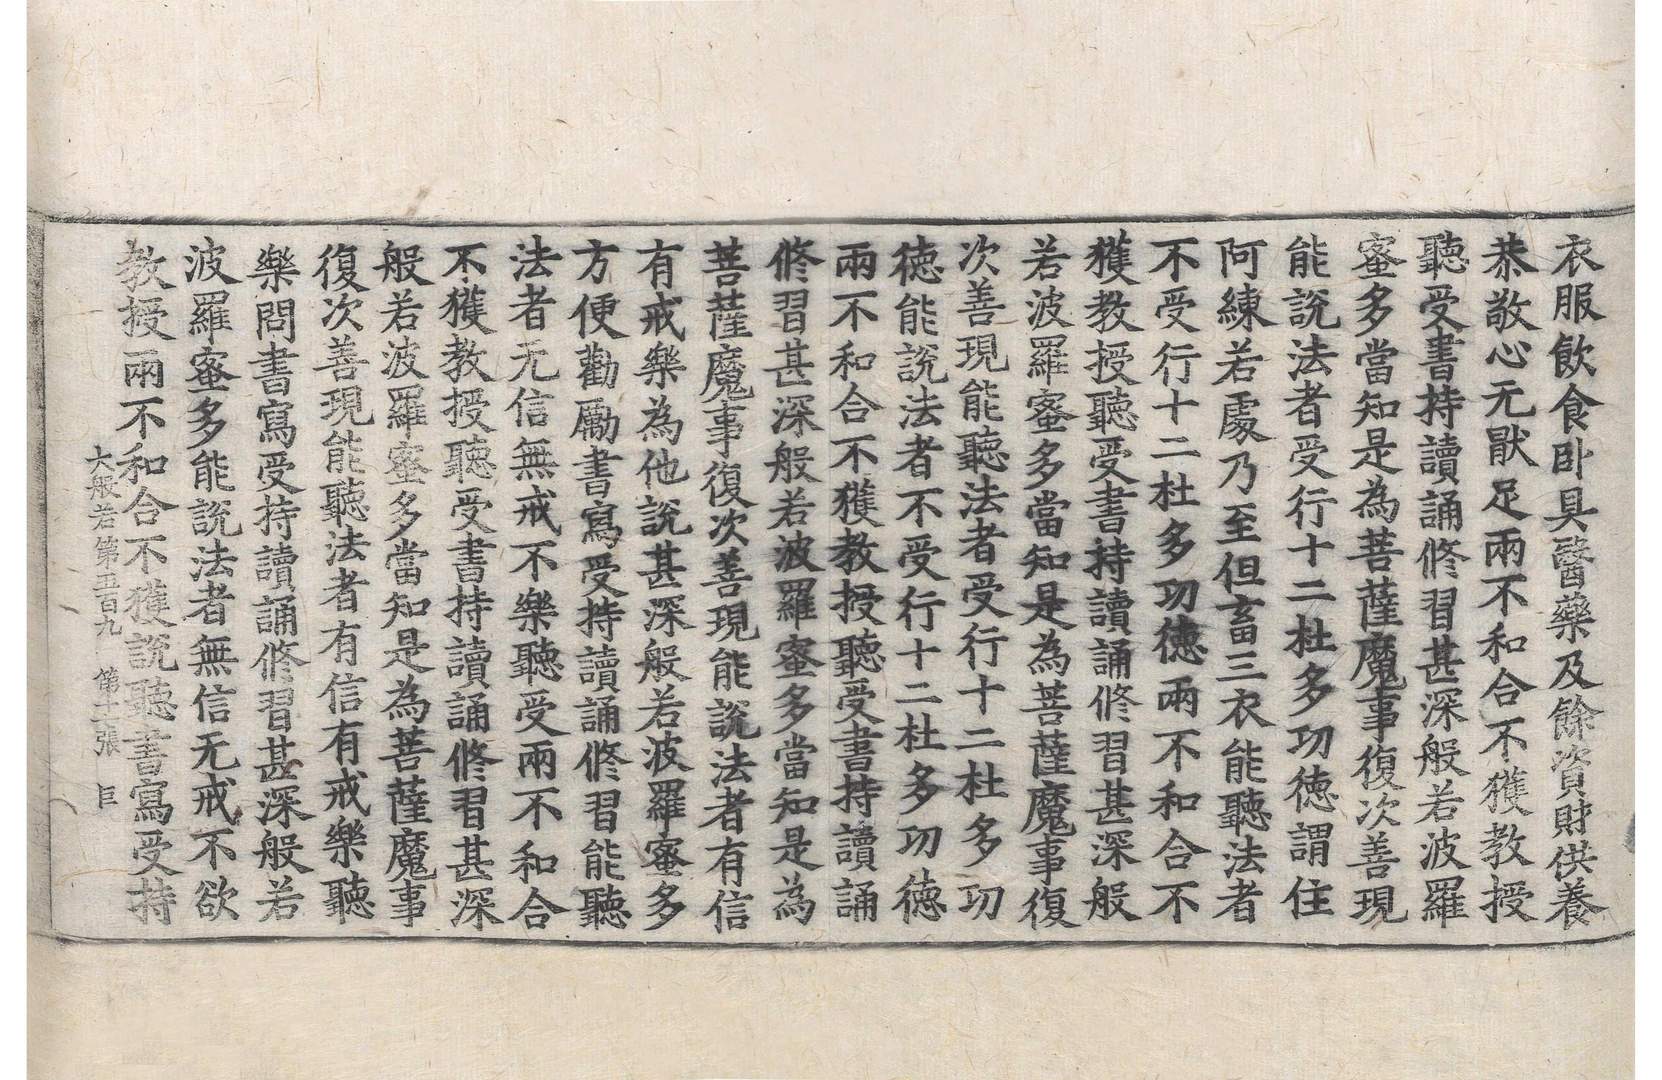 衣服飲食卧具醫藥及餘資財供養
恭敬心无猒足兩不和合不獲教授
聽受書持讀誦修習甚深般若波羅
蜜多當知是為菩薩魔事復次善現
能說法者受行十二杜多功德謂住
阿練若處乃至但畜三衣能聽法者
不受行十二杜多功德兩不和合不
獲教授聽受書持讀誦修習甚深般
若波羅蜜多當知是為菩薩魔事復
次善現能聽法者受行十二杜多功
德能說法者不受行十二杜多功德
兩不和合不獲教授聽受書持讀誦
修習甚深般若波羅蜜多當知是為
菩薩魔事復次善現能說法者有信
有戒樂為他說甚深般若波羅蜜多
方便勸勵書寫受持讀誦修習能聽
法者无信無戒不樂聽受兩不和合
不獲教授聽受書持讀誦修習甚深
般若波羅蜜多當知是為菩薩魔事
復次善現能聽法者有信有戒樂聽
樂問書寫受持讀誦修習甚深般若
波羅蜜多能說法者無信无戒不欲
教授兩不和合不獲說聽書寫受持
大般若第五百九 第十一張 巨